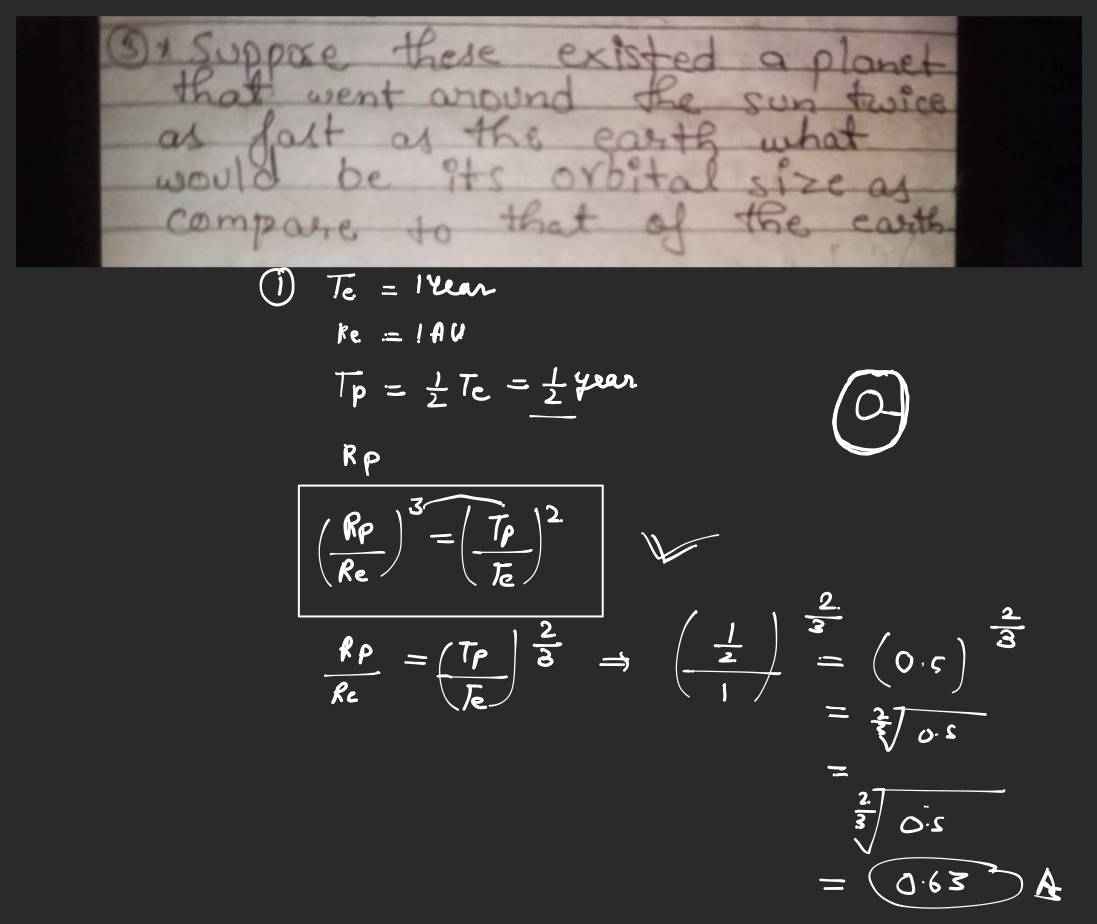 5 * Suppose these existed a planet
that went around the sun twice
as fast as the earth what
would be its orbital size as
compare to that of the earth
① Te = 1 Year
Re = 1 AU
Tp = 1/2 Te = 1/2 year
Rp
(Rp/Re)^3 = (Tp/Te)^2
Rp/Re = (Tp/Te)^2/3 ⇒ (1/2/1)^2/3 = (0.5)^2/3
= 2/3√0.5
=
2/3√0.5
= 0.63 A